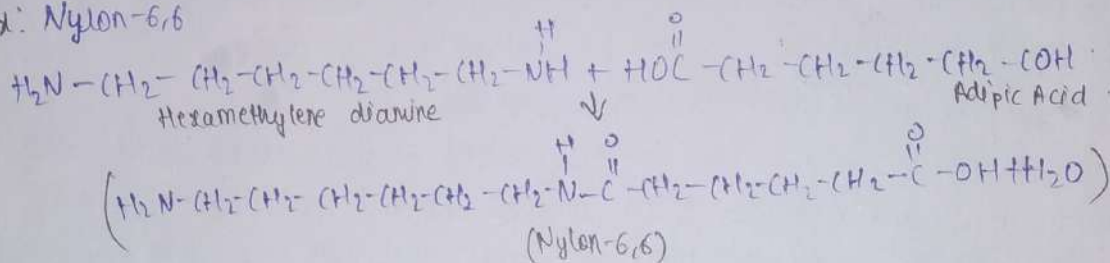 x: Nylon-6,6
H O
H₂N-CH₂-CH₂-CH₂-CH₂-CH₂-CH₂-NH + HOC-CH₂-CH₂-CH₂-CH₂-COH
Hexamethylene diamine Adipic Acid
↓
H O O
(H₂N-CH₂-CH₂-CH₂-CH₂-CH₂-CH₂-N-C-CH₂-CH₂-CH₂-CH₂-C-OH+H₂O)
(Nylon-6,6)